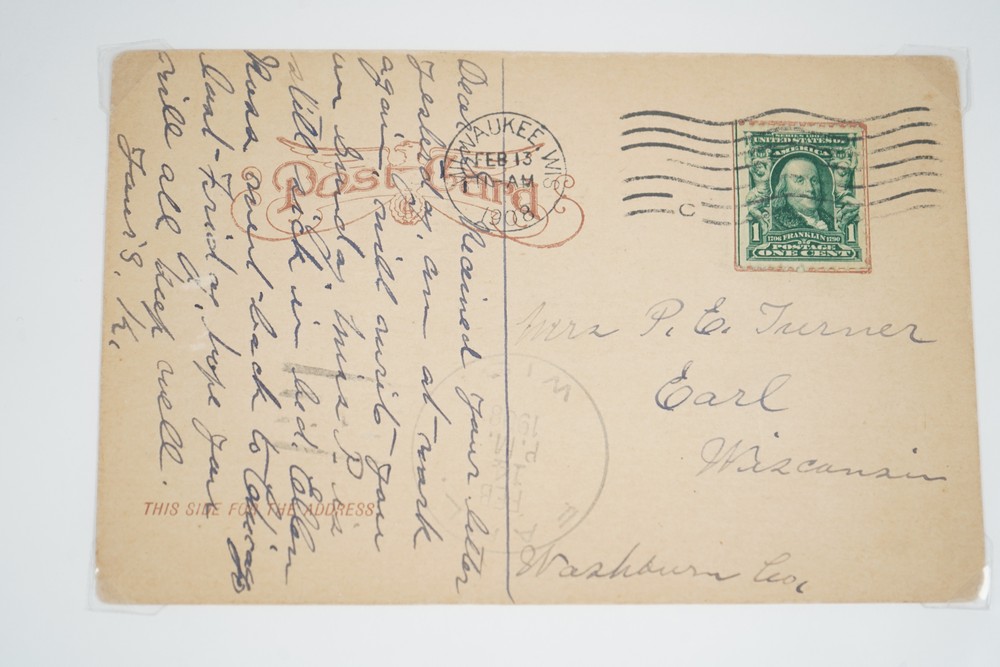 Dear M. Received your letter
yesterday, am at work
again. will write you
on Sunday. Miss P is
still sick in bed. Ellen
Russ went back to Chicago
last Friday, hope you
will all keep well.
Post Card
MILWAUKEE, WIS.
FEB 13
AM
1908
C
SERIES 1902
UNITED STATES OF
AMERICA
1 1
1706 FRANKLIN 1790
POSTAGE
ONE CENT
Mrs P. E. Turner
Earl
Wisconsin
Washburn Co,
THIS SIDE FOR THE ADDRESS